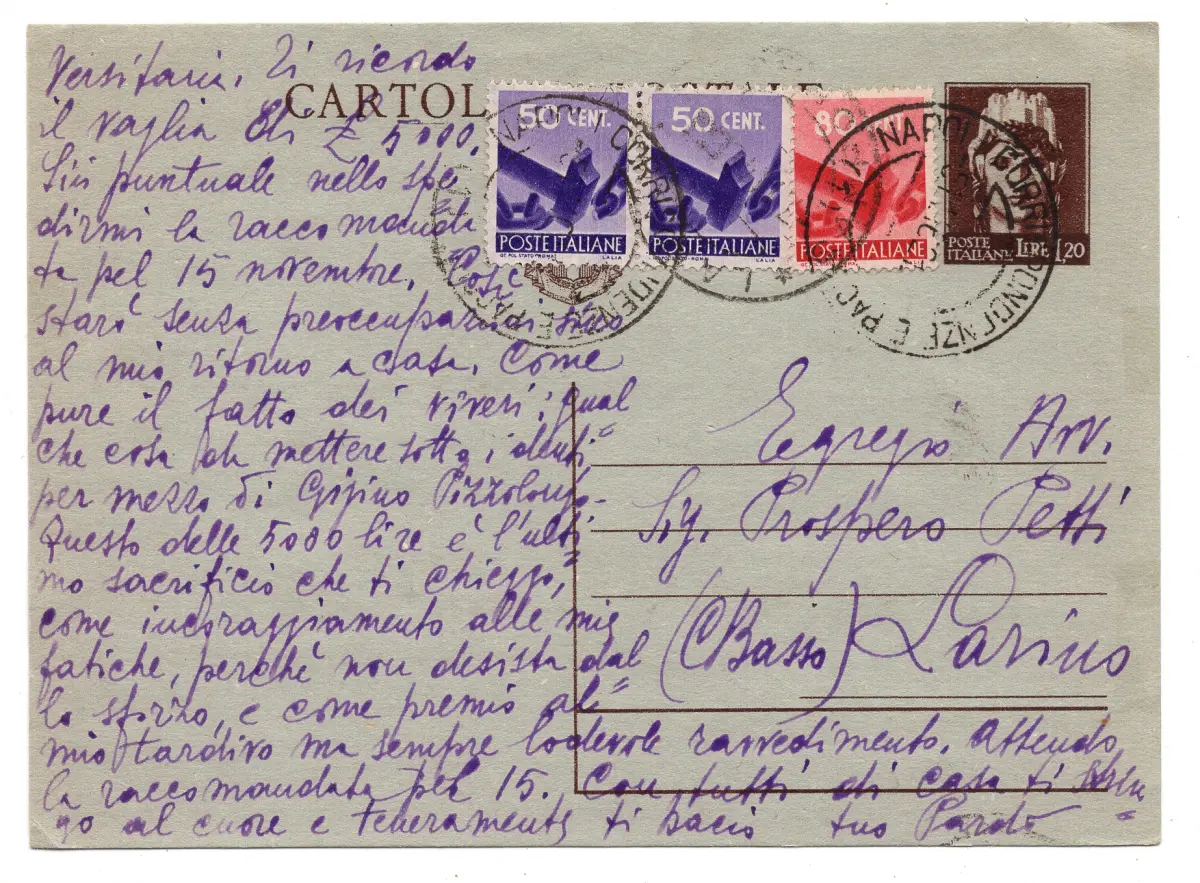 versitaria. Ti ricordo
il vaglia di £ 5000.
Sii puntuale nello spe
dirmi la raccomanda
ta pel 15 novembre. Così
starò senza preoccuparmi sino
al mio ritorno a casa. Come
pure il fatto dei viveri: qual
che cosa da mettere sotto i denti,
per mezzo di Gigino Pizzolongo.
Questo delle 5000 lire è l'ulti-
mo sacrificio che ti chieggo,
come incoraggiamento alle mie
fatiche, perchè non desista dal
lo sforzo, e come premio al
mio tardivo ma sempre lodevole ravvedimento. Attendo
la raccomandata pel 15. Con tutti di casa ti strin
go al cuore e teneramente ti bacio tuo Pardo
CARTOL STALE
50 CENT.
POSTE ITALIANE
50 CENT.
POSTE ITALIANE
80 CENT.
POSTE ITALIANE
POSTE ITALIANE LIRE 1,20
NAPOLI CORRISPONDENZE E PACCHI
NAPOLI CORRISPONDENZE E PACCHI
Egregio Avv.
Sig. Prospero Petti
(CBasso) Larino